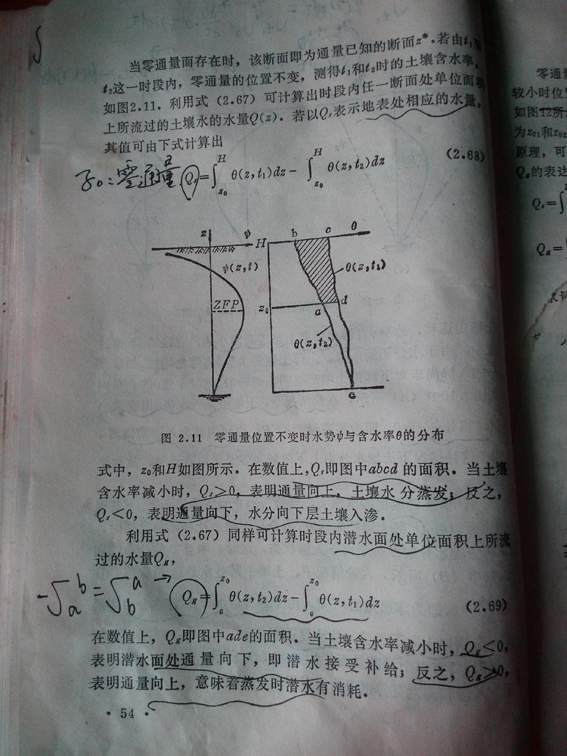 当零通量而存在时，该断面即为通量已知的断面z*。若由t₁
t₂这一时段内，零通量的位置不变，测得t₁和t₂时的土壤含水率，
如图2.11。利用式（2.67）可计算出时段内任一断面处单位面积
上所流过的土壤水的水量Q(z)。若以Qₛ表示地表处相应的水量，
其值可由下式计算出
z₀:零通量
Qₛ=∫_{z₀}^{H}θ(z,t₁)dz-∫_{z₀}^{H}θ(z,t₂)dz (2.68)
z ψ H b c θ
ψ(z,t) θ(z,t₁)
ZFP z₀ a d
θ(z,t₂)
e
图 2.11 零通量位置不变时水势ψ与含水率θ的分布
式中，z₀和H如图所示。在数值上，Qₛ即图中abcd 的面积。当土壤
含水率减小时，Qₛ>0，表明通量向上，土壤水分蒸发；反之，
Qₛ<0，表明通量向下，水分向下层土壤入渗。
利用式（2.67）同样可计算时段内潜水面处单位面积上所流
过的水量Qg，
-∫_a^b=∫_b^a → Qg=∫_0^{z₀}θ(z,t₂)dz-∫_0^{z₀}θ(z,t₁)dz (2.69)
在数值上，Qg即图中ade的面积。当土壤含水率减小时，Qg<0，
表明潜水面处通量向下，即潜水接受补给；反之，Qg>0，
表明通量向上，意味着蒸发时潜水有消耗。
· 54 ·
零通
较小时位
如图12所
为z₀₁和z₀₂
原理，可
Qₛ的表达
Qₛ=∫
Qg=